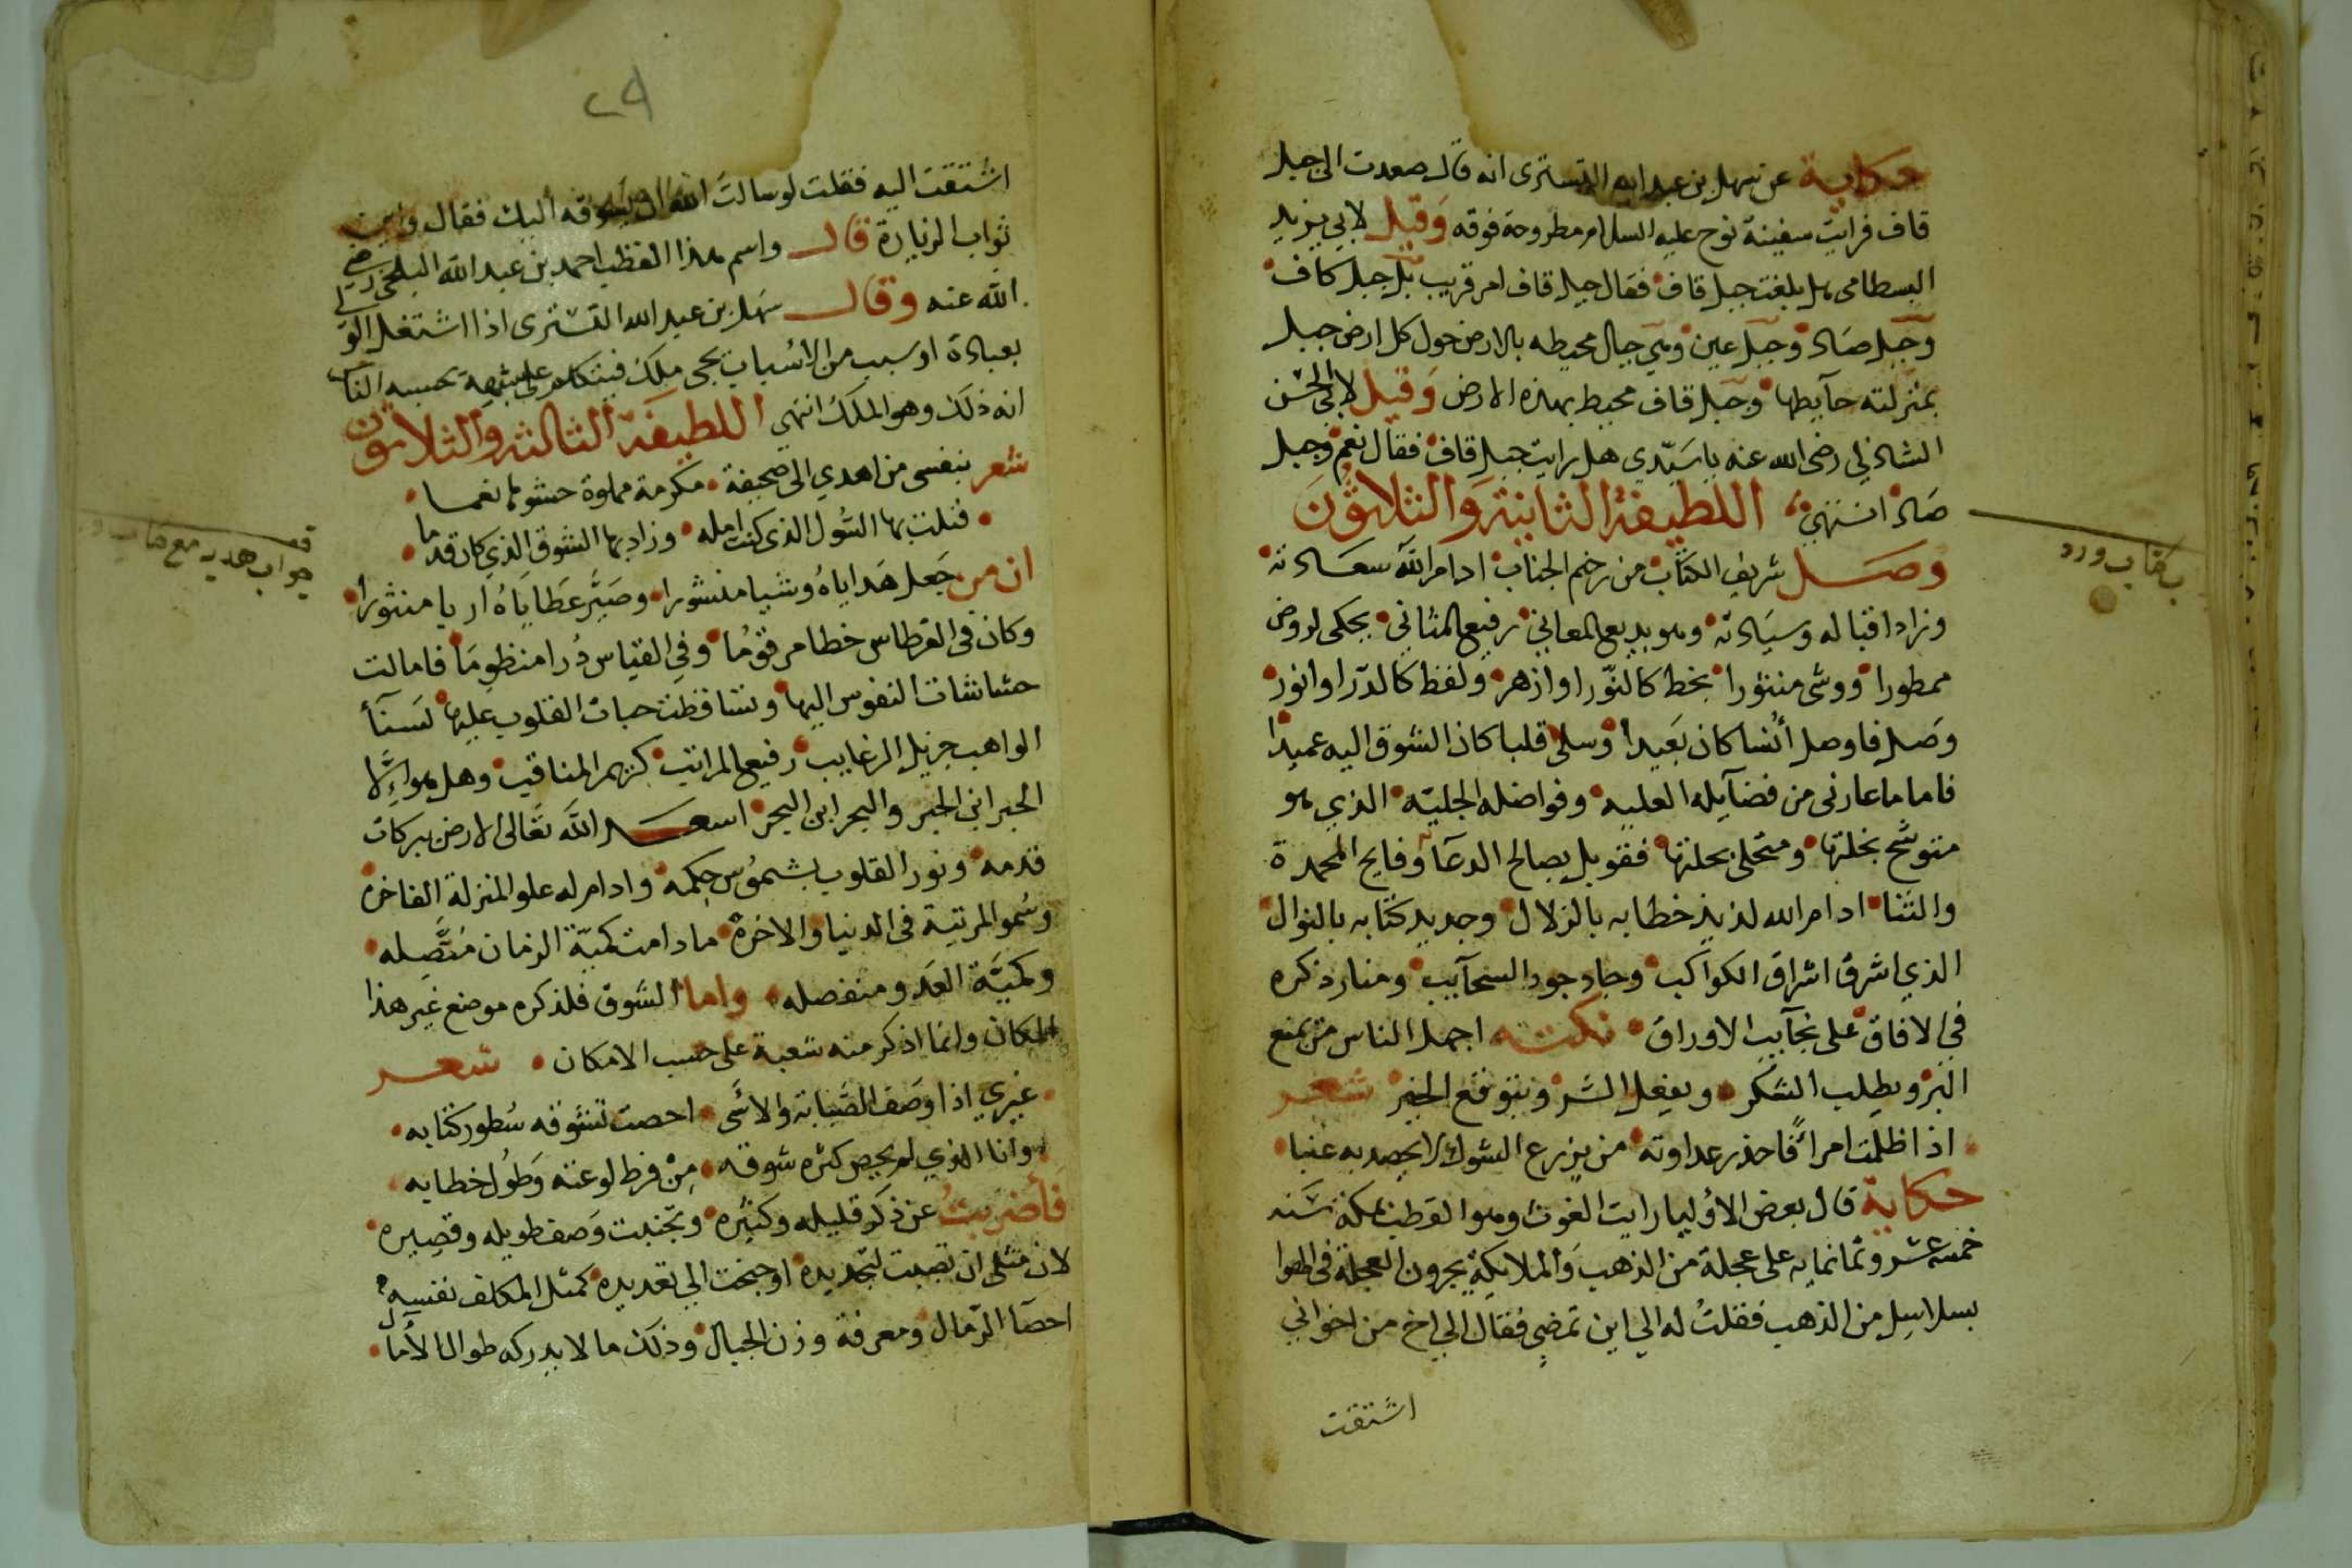 حكاية عن سهل بن عبد الله التسترى انه قال صعدت الى جبل
قاف فرايت سفينة نوح عليه السلام مطروحة فوقه وَقيل لابي يزيد
البسطامى هل بلغت جبل قاف فقال جبل قاف امر قريب بل جبل كاف
وجبل صَاد وجبل عين وهي جبال محيطه بالارض حول كل ارض جبل
بمنزلته حآيطها وجبل قاف محيط بهذه الارض وَقيل لابي الحسن
الشاذلي رضى الله عنه يا سَيّدي هل رايت جبل قاف فقال نعم وجبل
صَاد انتهي اللطيفة الثانية وَالثلاثُونَ
وصَل شريف الكتاب من رخيم الجناب ادام الله سعَادته
وزاد اقباله وسيَادته وهو بديع المعاني رفيع المثاني يحكى لروض
ممطورا ووشى منثورا بخط كالنّور او ازهر ولفظ كالدّرا وانور
وصَل فاوصل أنسا كان بَعيدا وسلى قلبا كان الشوق اليه عميدا
فاما ما عارنى من فضآيله العليه وفواضله الجليّه الذي هو
متوشح بخلتها ومتحلى بحلتها فقوبل بصالح الدعآ وفايح المحمدة
والثنا ادام الله لذيذ خطابه بالزلال وجديد كتابه بالنوال
الذي اشرق اشراق الكواكب وجاد جود السحآيب ومنار ذكره
في الافاق على نجآيب الاوراق نكتته اجهل الناس من يمنع
البر ويطلب الشكر ويفعل الشر ويتوقع الخير شعر
اذا ظلمت امرأً فاحذر عداوته من يزرع الشوك لا يحصد به عنبا
حكاية قال بعض الاوُليا رايت الغوث وهو القطب بمكة سَنه
خمسة عشر وثمانمايه على عجلة من الذهب وَالملايكة يجرون العجلة فى الهوا
بسلاسِل من الذهب فقلتُ له الي اين تمضي فقال الي اخ من اخواني
اشتقت
بـ كتاب ورد
٢٩
اشتقت اليه فقلت لو سالتَ الله ان يسوقه اليك فقال واين
ثواب الزيارة قال واسم هذا القطب احمد بن عبد الله البلخى رضي
الله عنه وقال سَهل بن عبد الله التسْترى اذا اشتغل الولي
بعبادة او سبب من الاسباب يجى ملك فيتكلم على شبهه يحسبه الناس
انه ذلك وهو الملك انتهي اللطيفة الثالثه وَالثلاثون
شعر بنفسى من اهدي الى صحيفة مكرمة مملوة حشوها نغما
فنلت بها السُول الذى كنت امله وزاد بها الشوق الذي كان قدما
ان من جَعل هَداياهُ وشيا منشورا وصَيَّر عَطَايَاهُ اريا منثورا
وكان في القرطاس خطا مرقومُا وفي القياس دُرا منظومَا فامالت
حشاشات النفوس اليها وتساقطت حبات القلوب عليها لسَنآ
الواهب جزيل الرغايب رفيع المراتب كريم المناقب وهل هو إلَّا
الحبر ابن الحبر والبحر ابن البحر اسعَد الله تعَالى الارض ببركات
قدمه ونور القلوب بشموُس حِكمه وادام له علو المنزلة الفاخره
وسُمو المرتبة فى الدنيا والاخرة ما دامت كميّة الزمان مُتصِّله
وكميَّة العَدو منفصله واما الشوق فلذكره موضع غير هذا
المكان وانما اذكر منه شعبة على حسب الامكان شعر
غيري اذا وصَف الصَّبابة والاسَى احصت تشوقه سُطور كتابه
وانا الذي لم يحص كثره شوقه مِنْ فرط لوعته وَطُول خطابه
فأضربتُ عن ذكر قليله وكثيره وتجنبت وَصف طويله وقصِيره
لان مثلى ان تصبت لتجديده او جنحت الي تعديده كمثل المكلف نفسه
احصَآ الرّمال ومعرفة وزن الجبال وذلك ما لا يدركه طوال الأمال
جواب هديه مع كتاب